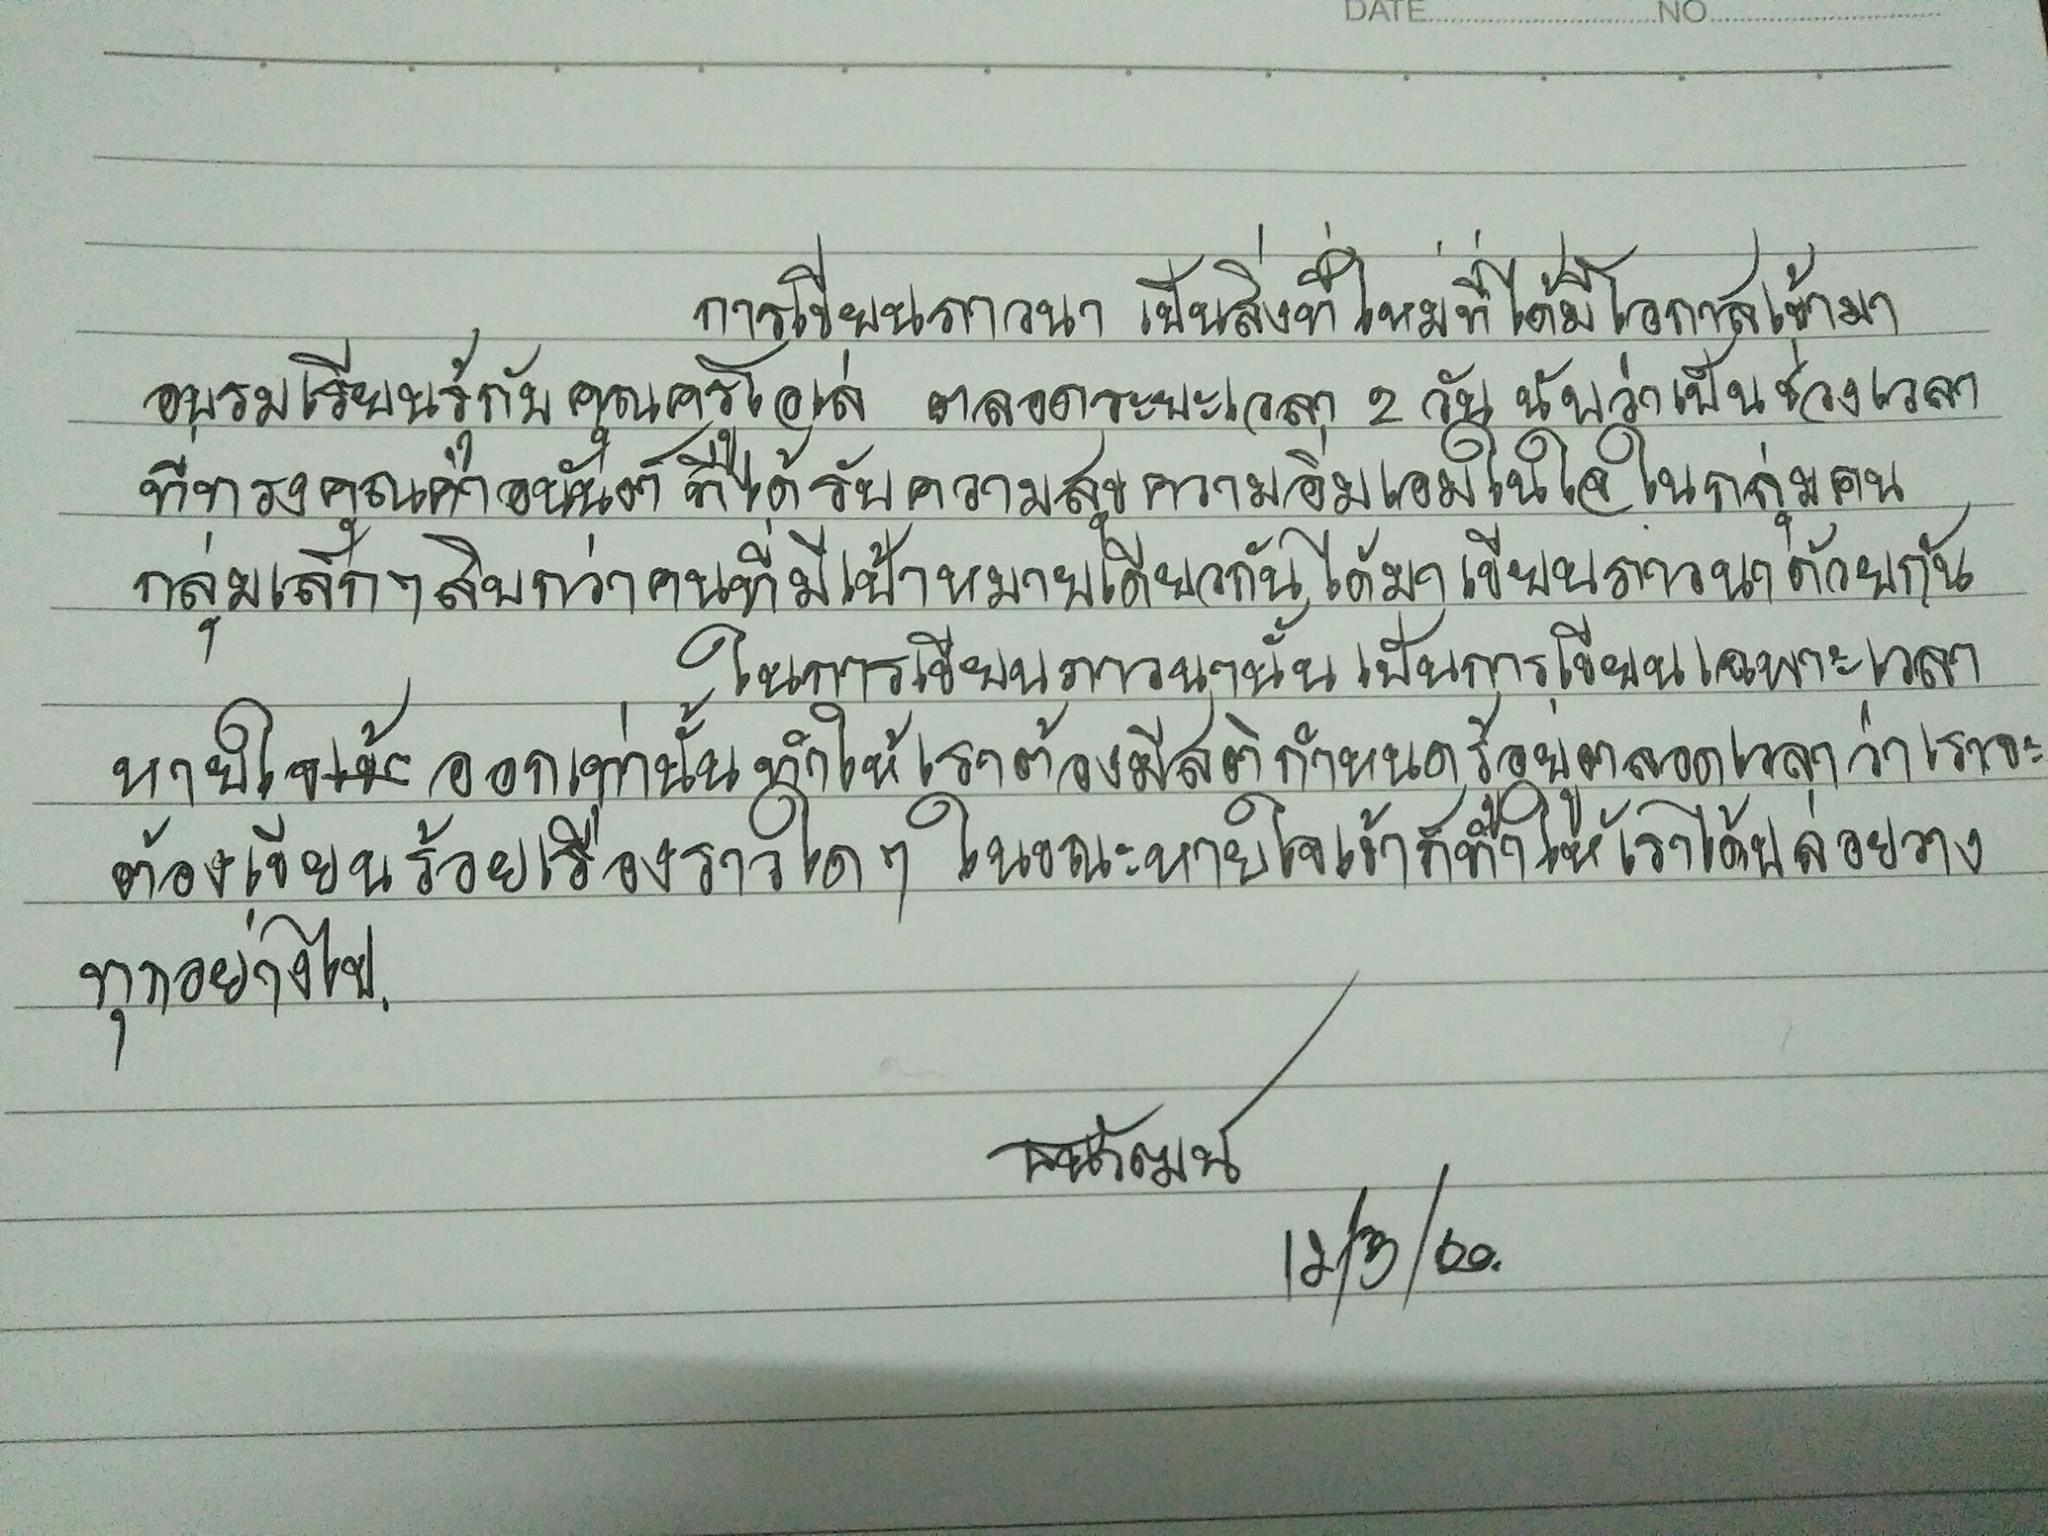 DATE..............................NO..............................
การเขียนภาวนา เป็นสิ่งที่ใหม่ที่ได้มีโอกาสเข้ามา
อบรมเรียนรู้กับคุณครูโอเล่ ตลอดระยะเวลา 2 วัน นับว่าเป็นช่วงเวลา
ที่ทรงคุณค่าอนันต์ ที่ได้รับความสุขความอิ่มเอมในใจในกลุ่มคน
กลุ่มเล็กๆสิบกว่าคนที่มีเป้าหมายเดียวกันได้มาเขียนภาวนาด้วยกัน
ในการเขียนภาวนานั้น เป็นการเขียนเฉพาะเวลา
หายใจ ออกเท่านั้นทำให้เราต้องมีสติกำหนดรู้อยู่ตลอดเวลาว่าเราจะ
ต้องเขียนร้อยเรื่องราวใดๆ ในขณะหายใจเข้าก็ทำให้เราได้ปล่อยวาง
ทุกอย่างไป.
12/3/60.